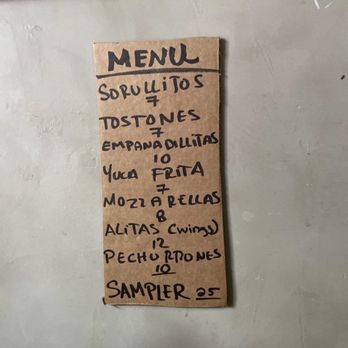 MENU
SORULLITOS
7
TOSTONES
7
EMPANADILLITAS
10
YUCA FRITA
7
MOZZARELLAS
8
ALITAS (wings)
12
PECHURRONES
10
SAMPLER 25